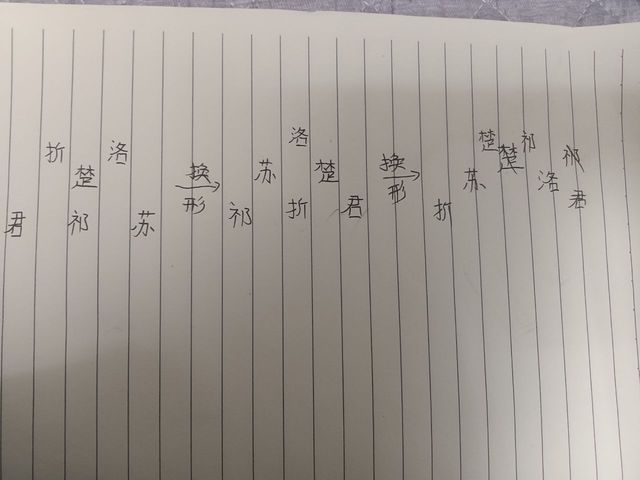 折 洛 洛 楚 祁
楚 换 苏 楚 换 苏 楚 洛 祁
君 祁 苏 形 祁 折 君 形 折 君